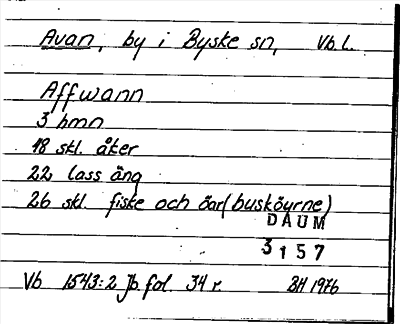 Avan, by i Byske sn, Vb l.
Affwann
3 hmn
18 skl. åker
22 lass äng
26 skl. fiske och öar (busköurne)
DAUM
3157
Vb 1543:2 Jb fol. 34 r. BH 1976